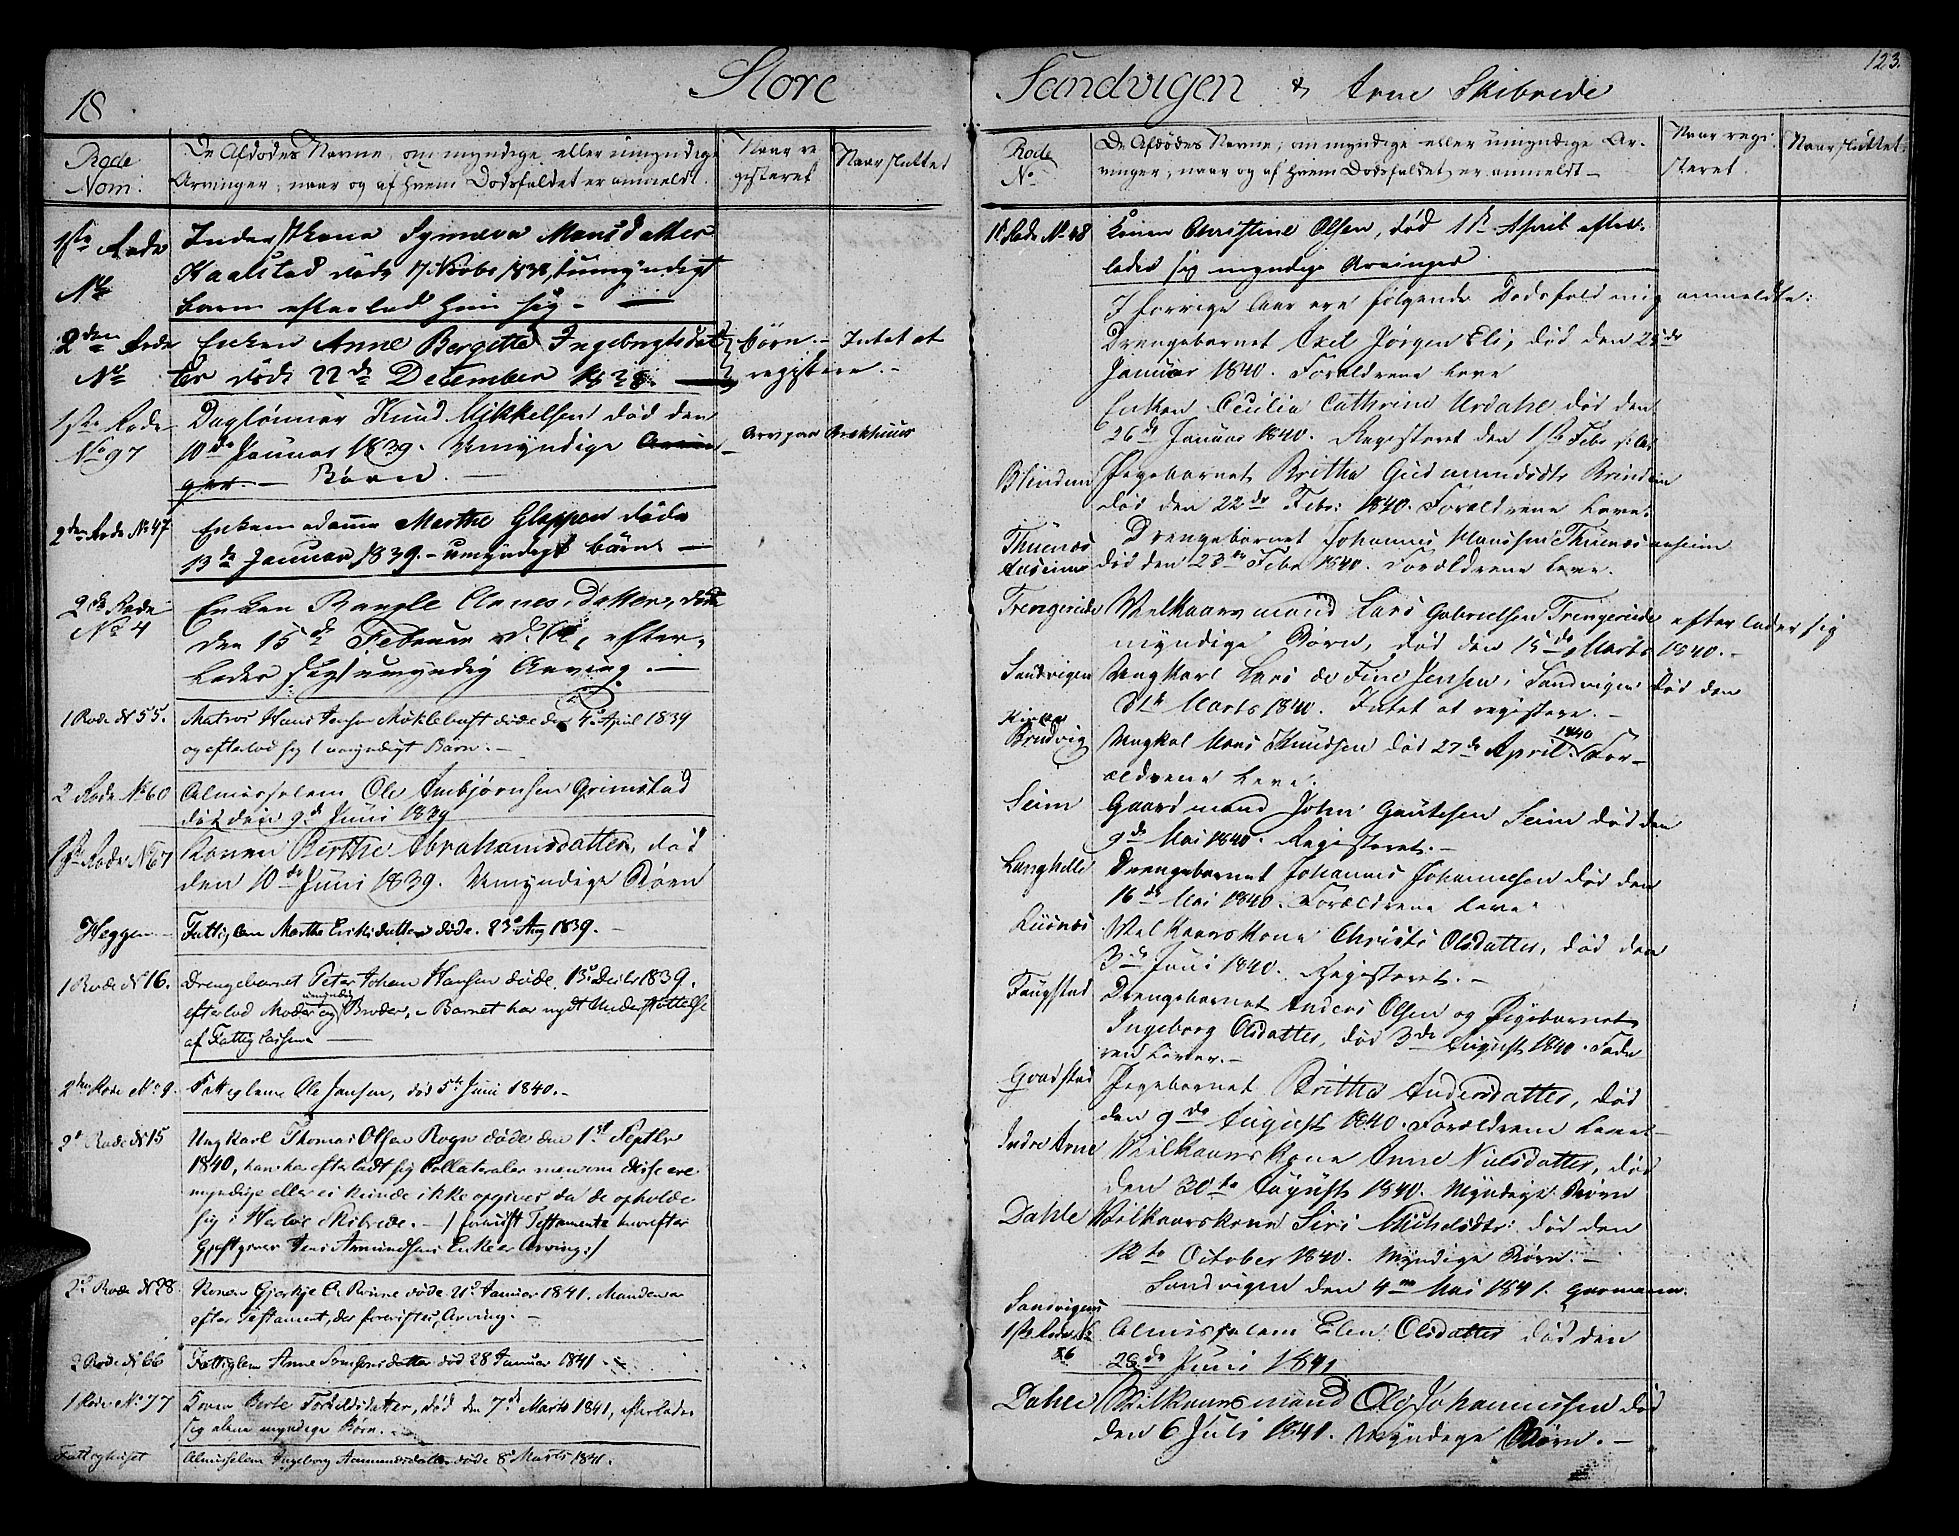 18
Store
Rode
Nom:
De Afdødes Navne, om myndige eller umyndige
Arvinger, naar og af hvem Dødsfaldet er anmeldt.
Naar re
gisteret
Naar sluttet
1ste Rode
No
Kone Synneva Monsdatter
Kaalstad døde 17 Novbr 1838, umyndigt
barn efterlod hun sig -
2den Rode
No
Enken Anne Bergitte Ingebrigtsdat
ter døde 22de December 1838.
børn. - Intet at
registere. -
1ste Rode
No 97
Daglønner Knud Mikkelsen død den
10de Januar 1839. Umyndige Arvin
ger. - Børn. -
2den Rode No 47
Enkemadamme Marthe Gloppen døde
13de Januar 1839. - umyndige børn -
2de Rode
No 4
Enken Ragle Annesdatter, døde
den 15de Februar d. A., efter-
lader sig umyndig Arving. -
1 Rode No 55.
Matros Hans Jensen Møklebust døde den 4de April 1839
og efterlod sig 1 umyndigt Barn. -
2 Rode No 60
Almisselem Ole Ambjørnsen Grimstad
død den 9de Juni 1839
1ste Rode No 67
Konen Berthe Abrahamsdatter, død
den 10de Juni 1839. Umyndige Børn
Heggen -
Fattiglem Marthe Eriksdatter døde. 23de Aug 1839. -
1 Rode No 16.
Drengebarnet Peter Johan Hansen døde 13de Decbr 1839.
efterlod Moder og umyndig Broder, - Barnet har nydt Understøttelse
af Fattigkassen -
2den Rode No 9.
Fattiglem Ole Jansen, død 5te Juni 1840. -
2de Rode No 15
Ungkarl Thomas Olsen Rogn døde den 1ste Septbr
1840, han har efterladt sig Collateraler men om disse ere
myndige eller ei kunde ikke opgives da de opholde
sig i Herløe Skibrede. - / forevist Testamente hvorefter
Gjestgiver Jens Amundsens Enke er Arving:/
2de Rode No 28
Konen Gjertje C. Rønne døde 21de Januar 1841. Manden er
efter Testament, der forevistes, Arving. -
2 Rode No 66
Fattiglem Anne Simonsdatter død 28 Januar 1841. -
1 Rode No 77
Konen Berte Torkildsdatter, død den 7de Marts 1841, efterlader
sig alene myndige Børn. -
Fattighuset
Almisselem Ingeborg Aanmundsdatter døde 8de Marts 1841.
123.
Sandvigen & Arne Skibrede
Rode
No
De Afdødes Navne, om myndige eller umyndige Ar-
vinger, naar og af hvem Dødsfaldet er anmeldt -
Naar regi-
steret.
Naar sluttet.
1st Rode No 48
Konen Christine Olsen, død 1ste April efter-
lader sig myndige Arvinger.
I forrige Aar ere følgende Dødsfald mig anmeldte:
Drengebarnet Axel Jørgen Eli, død den 25de
Januar 1840. Forældrene leve
Enken Cecilia Cathrine Urdahl død den
26de Januar 1840. Registeret den 1ste Febr s. A.
Blindun
Pigebarnet Britha Gudmundsdtr
død den 22de Febr: 1840. Forældrene leve.
Thuenæs
Drengebarnet Johannes Hanssen Thuenæs
død den 23de Febr 1840. Forældrene leve.
Trengereide
Velkaarsmand Lars Gabrielsen Trengereide efterlader sig
myndige Børn, død den 15de Marts 1840. -
Sandvigen
Ungkarl Lars de Fine Jensen, Sandvigen død den
Marts 1840. Intet at registere. -
Brudvig
Ungkal Hans Knudsen død 27de April 1840. For-
ældrene leve.
Seim
Gaardmand John Gautesen Seim død den
9de Mai 1840. Registeret. -
Langhelle
Drengebarnet Johannes Johannesen død den
16de Mai 1840. Forældrene leve.
Velkaarskone Christi Olsdatter, død den
3de Juni 1840. Registeret. -
Faugstad
Drengebarnet Anders Olsen og Pigebarnet
Ingeborg Olsdatter, død 3de August 1840. Fade
ren lever. -
Pigebarnet Britha Andersdatter, død
den 9de August 1840. Forældrene leve. -
Indre Arne
Velkaarskone Anne Nielsdatter, død
den 30te August 1840. Myndige Børn
Dahle
Velkaarskone Siri Nielsdtr: død den
12te October 1840. Myndige Børn. -
Sandvigen den 4de Mai 1841. Garmann.
Sandvigens
1ste Rode
Almisselem Elen Olsdatter død den
28de Juni 1841
Dahle
Velkaarsmand Ole Johannessen død
den 6 Juli 1841. Myndige Børn. -